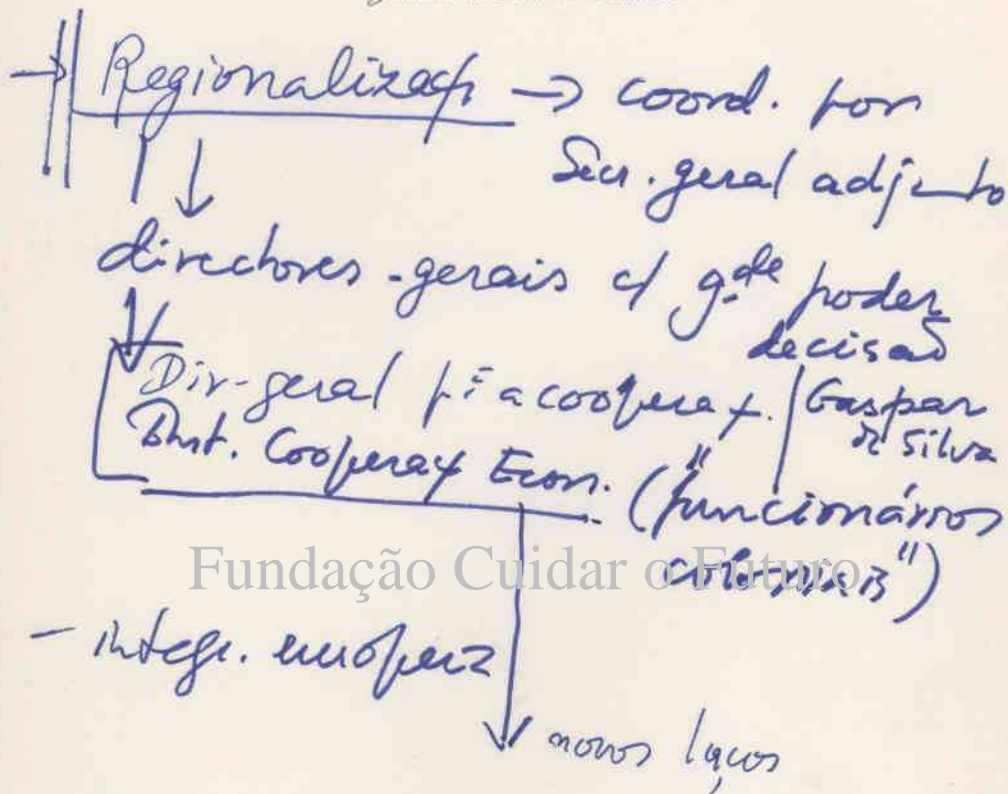 → Regionalizaç → coord. por
Secr. geral adjunto
directores-gerais c/ g.de poder
decisão
Dir-geral p.a a cooperaç. / Gaspar
da Silva
Inst. Cooperaç Econ. ("funcionários
coloniais")
Fundação Cuidar o Futuro
- integr. europeia
novos laços